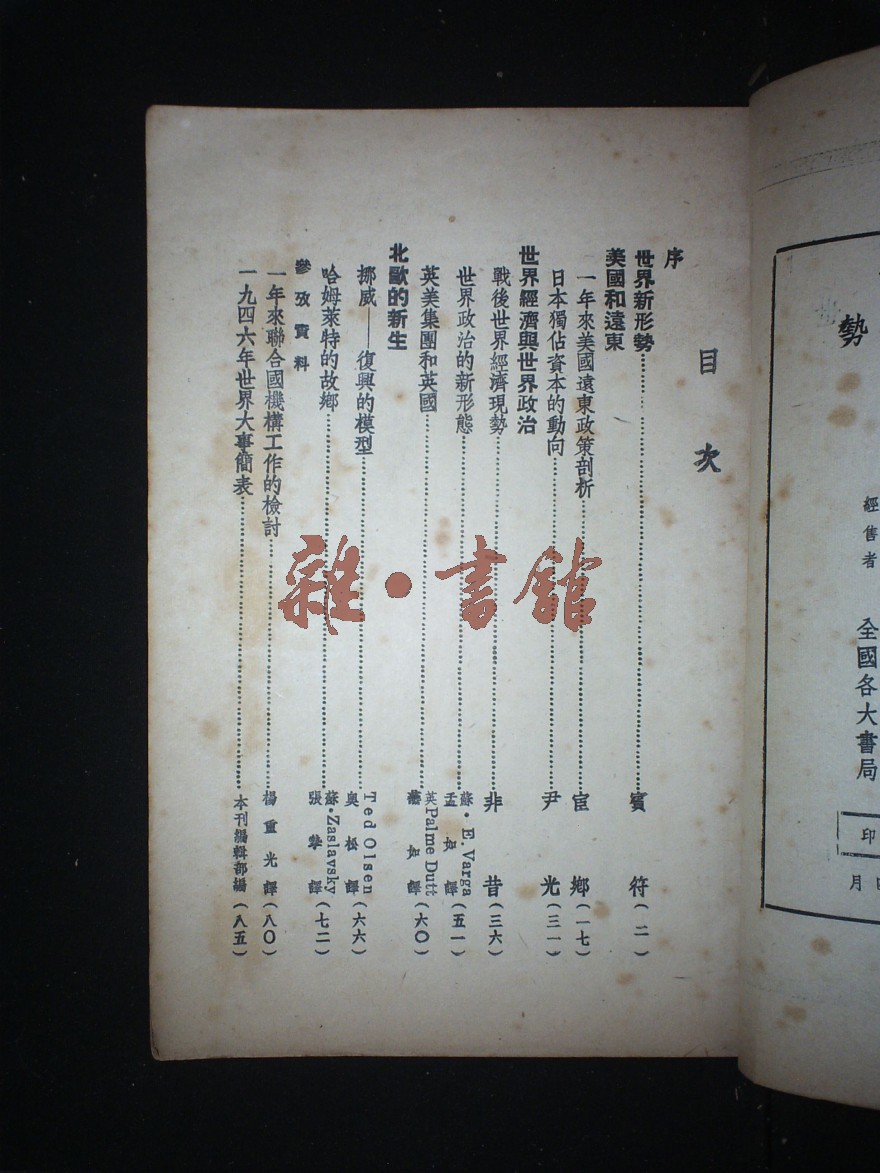 勢
經售者 全國各大書局
印
月
目次
序
世界新形勢……賓符(二)
美國和遠東
一年來美國遠東政策剖析……宦鄉(一七)
日本獨佔資本的動向……尹光(三一)
世界經濟與世界政治
戰後世界經濟現勢……非昔(三六)
世界政治的新形態……蘇·E. Varga 孟如譯(五一)
英美集團和英國……英Palme Dutt 如譯(六〇)
北歐的新生
挪威——復興的模型……Ted Olsen 奧松譯(六六)
哈姆萊特的故鄉……蘇·Zaslavsky 張摯譯(七二)
參攷資料
一年來聯合國機構工作的檢討……楊重光譯(八〇)
一九四六年世界大事簡表……本刊編輯部編(八五)
雜·書館